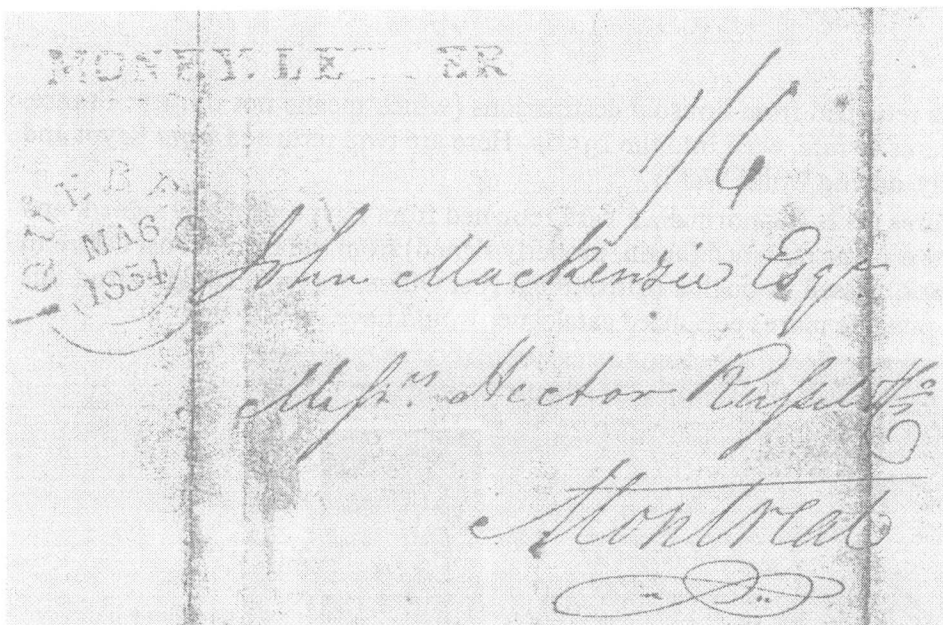 MONEY. LE ER
1/6
QUEBEC
MA6
1834
John Mackenzie Esqr
Messrs. Hector Russel & Co
Montreal